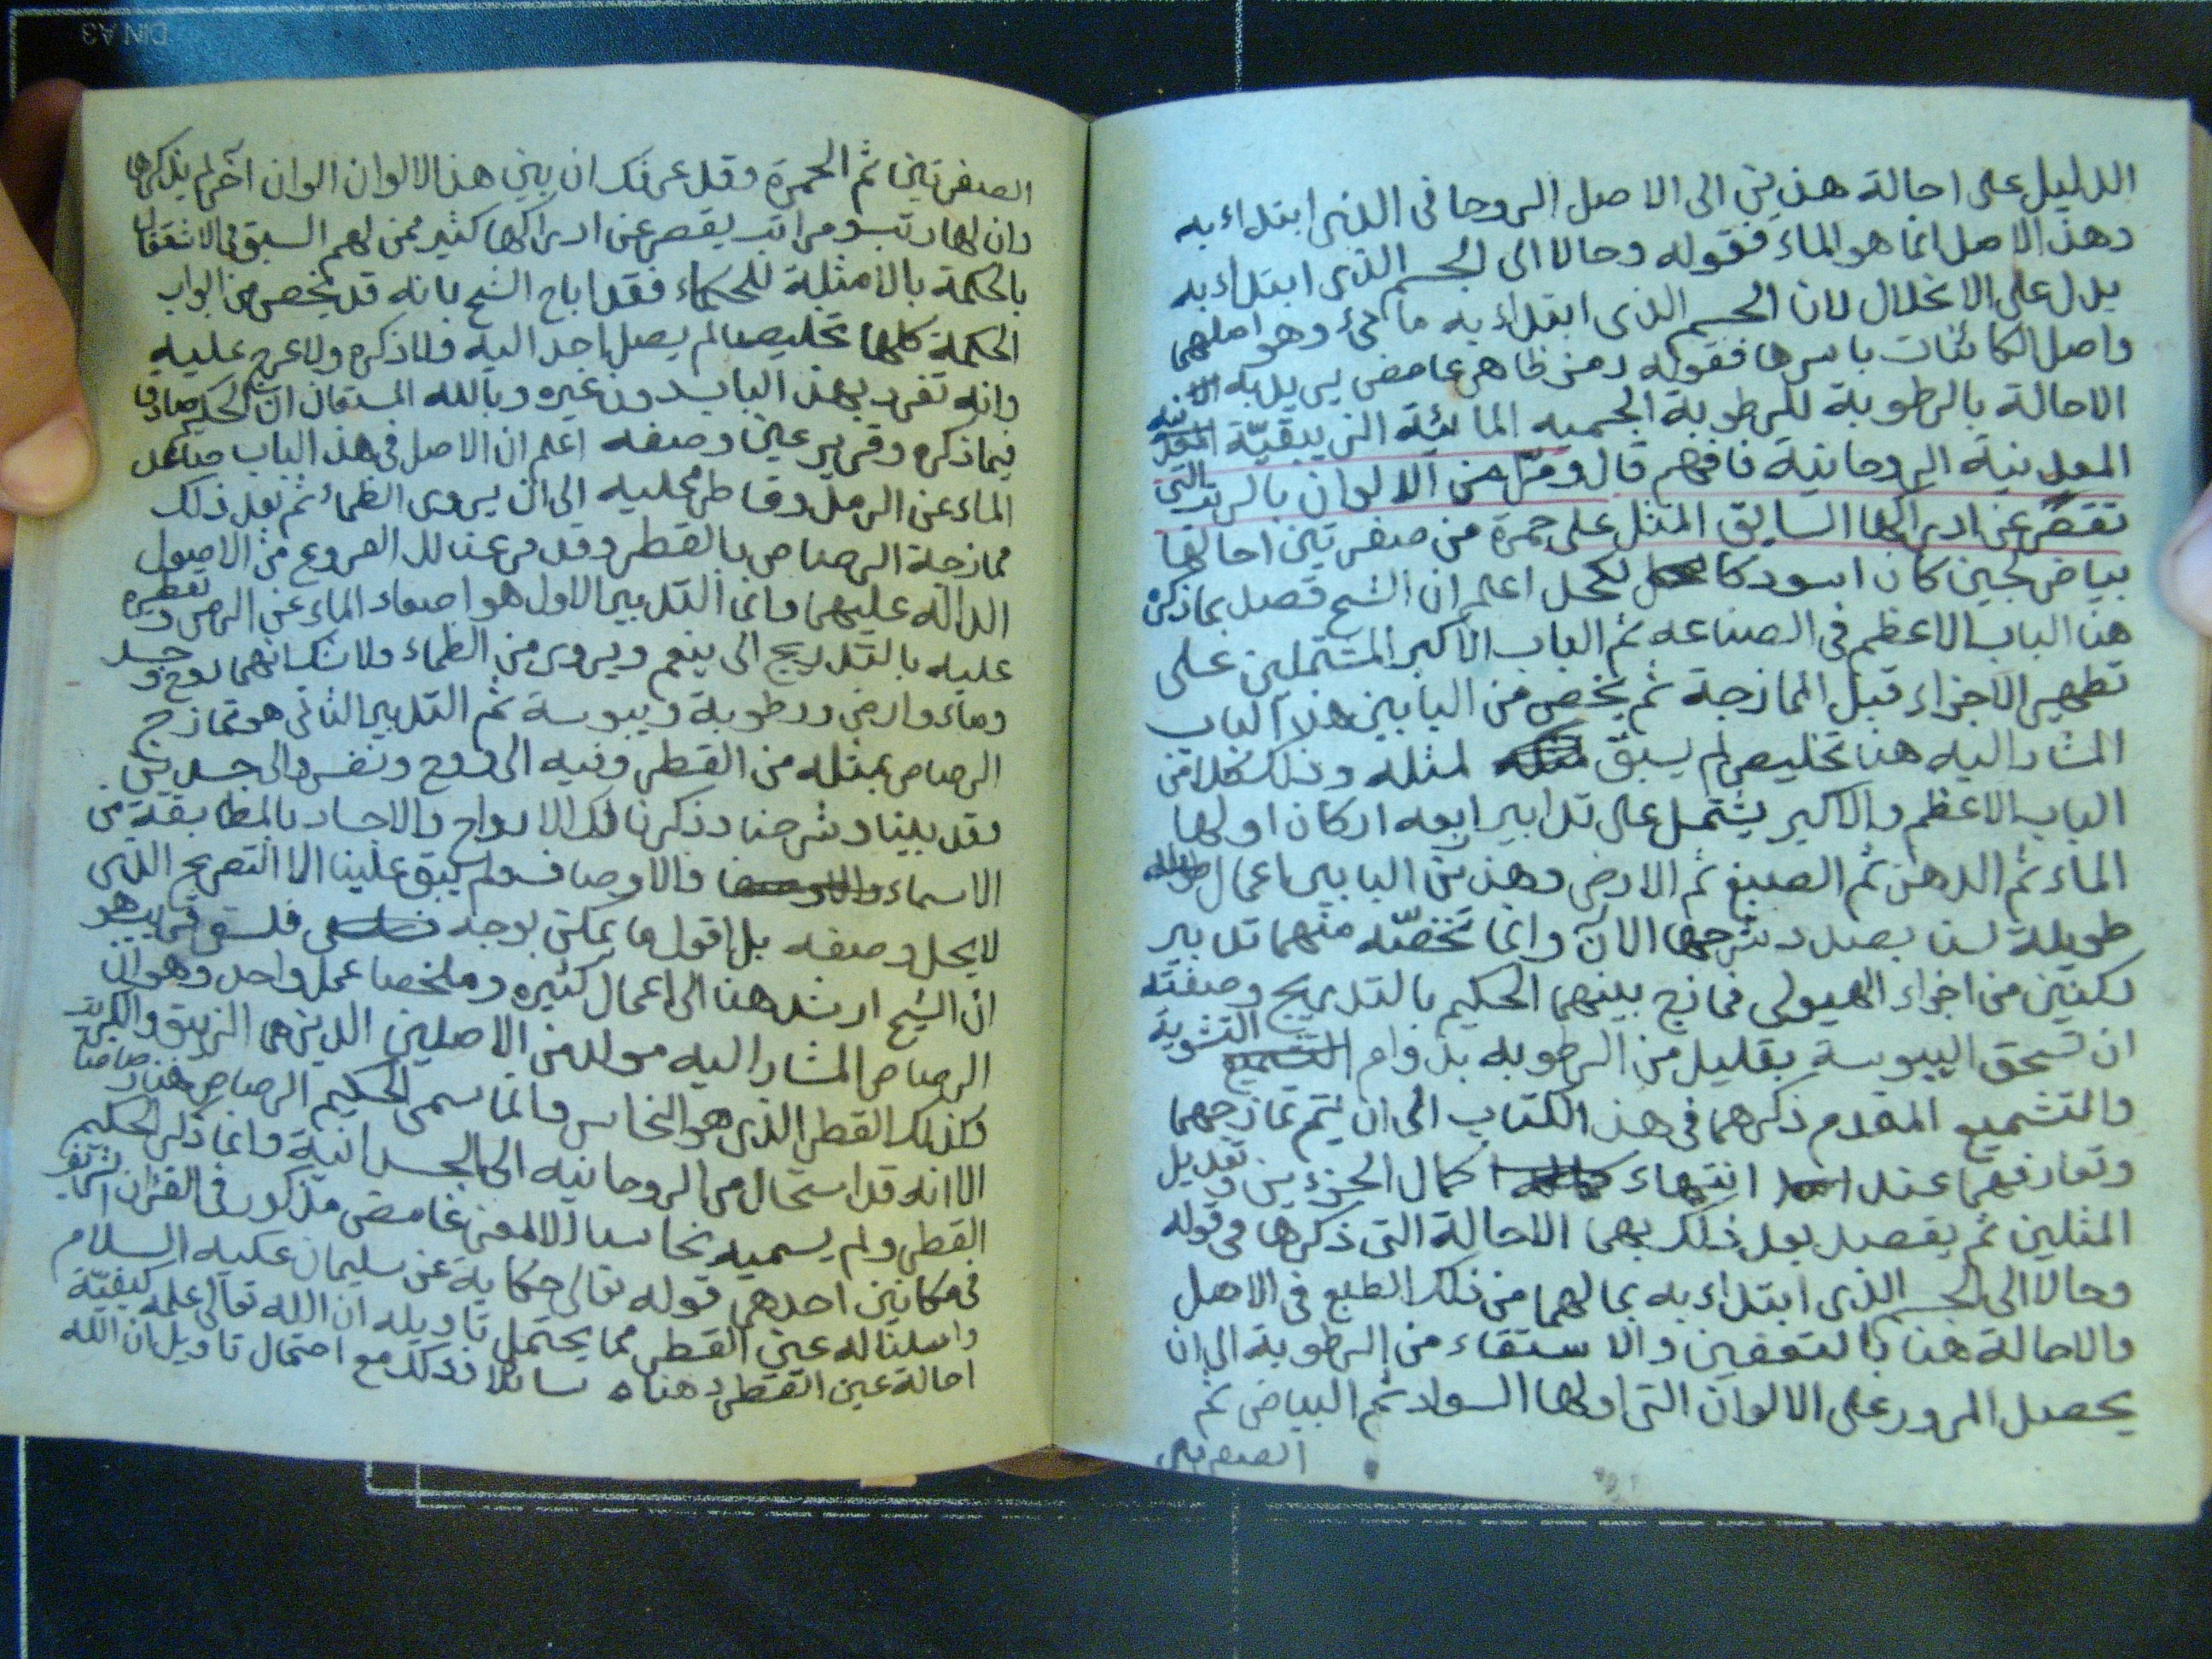 الدليل على احالة هذين الى الاصل الروحانى الذى ابتداء به
وهذا الاصل انما هو الماء فقوله وحالا الى الجسم الذى ابتداء به
يدل على الانحلال لان الجسم الذى ابتداء به ما وهو اصلهما
واصل الكائنات باسرها فقوله رمز ظاهر غامض يريد به
الاحالة بالرطوبة للرطوبة الجسميه المائية التى يبقيّة
المعدنية الروحانية فافهم قال ومرّا من الالوان بالرتب التى
تقصر عن ادراكها السابق المثل على حمرة من صفرتين احالها
بياض لجين كان اسود كالكحل اعلم ان الشيخ قصد بما ذكره
هنا الباب الاعظم فى الصناعه ثم الباب الاكبر المشتملين على
تطهير الاجزاء قبل الممازجة ثم يخص من البابين هذا الباب
المشار اليه هنا تخليص لم يسبق لمثله وذلك كلا من
الباب الاعظم والاكبر يشتمل على تدابير اربعه اركان اولها
الماء ثم الدهن ثم الصبغ ثم الارض وهذين البابين اعمال
طويلة لسنا بصدد شرحها الآن وانما نخصّه منهما تدبير
ركنين من اجزاء الهيولى فمازج بينهما الحكيم بالتدريج وصفته
ان تسحق اليبوسة بقليل من الرطوبه بدوام التشوية
والتشميع المقدم ذكرهما فى هذا الكتاب الى ان يتم تمازجهما
وتعارفهما عند انتهاء كمال الجزءين وتعديل
المثلين ثم يقصد بعد ذلك بهما الاحالة التى ذكرها فى قوله
وحالا الى الجسم الذى ابتداء به بمالهما من ذلك الطبع فى الاصل
والاحالة هنا بالتعفين والاستقاء من الرطوبة الى ان
يحصل المرور على الالوان التى اولها السواد ثم البياض ثم
الصفرتين
الصفرتين ثم الحمرة وقد عرفتك ان بين هذه الالوان الوان آخر لم يذكرها
وان لها رتب ومراتب يقصر عن ادراكها كثير ممن لهم السبق فى الاشتغال
بالحكمة بالامثلة للحكماء فقد اباح الشيخ بانه قد يخص من ابواب
الحكمة كلها تخليصا لم يصل احد اليه ولا ذكره ولا عرج عليه
وانه تفرد بهذا الباب دون غيره وبالله المستعان ان الحكيم صادق
فيما ذكره وقرير عين وصفه اعلم ان الاصل فى هذا الباب صاعد
الماء عن الرمل وقاطر عليه الى ان يروى الظماء ثم بعد ذلك
ممازجة الرصاص بالقطر وقد فرعنا لك الفروع من الاصول
الدالّه عليهما وانما التدبير الاول هو اصعاد الماء عن الرمل وتقطيره
عليه بالتدريج الى ينعم ويروى من الظماء ولا شك انهما روح وجسد
وماء وارض ورطوبة ويبوسة ثم التدبير الثانى هو تمازج
الرصاص بمثله من القطر وفيه الى روح ونفس والى جسدين
وقد بينا وشرحنا وذكرنا لك الارواح والاجساد بالمطابقة من
الاسماء والاوصاف ولم يبق علينا الا التصريح الذى
لا يحل وصفه بل اقول ما يمكن بوجه فلسفى هو
ان الشيخ ارشد هنا الى اعمال كثيره وملخصا عمل واحد وهو ان
الرصاص المشار اليه مولد من الاصلين الذين هما الزيبق والكبريت
وكذلك القطر الذى هو النحاس وانما سمى الحكيم الرصاص هنا رصاصا
الا انه قد استحال من الروحانيه الى الجسدانية وانما ذكر الحكيم
القطر ولم يسميه نحاسا الا لمعنى غامض مذكور فى القران الشريف
فى مكانين احدهما قوله تعالى حكاية عن سليمان عليه السلام
واسلنا له عين القطر مما يحتمل تاويله ان الله تعالى علمه كيفيّة
احالة عين القطر دهناه سائلا وذلك مع احتمال تاويل ان الله